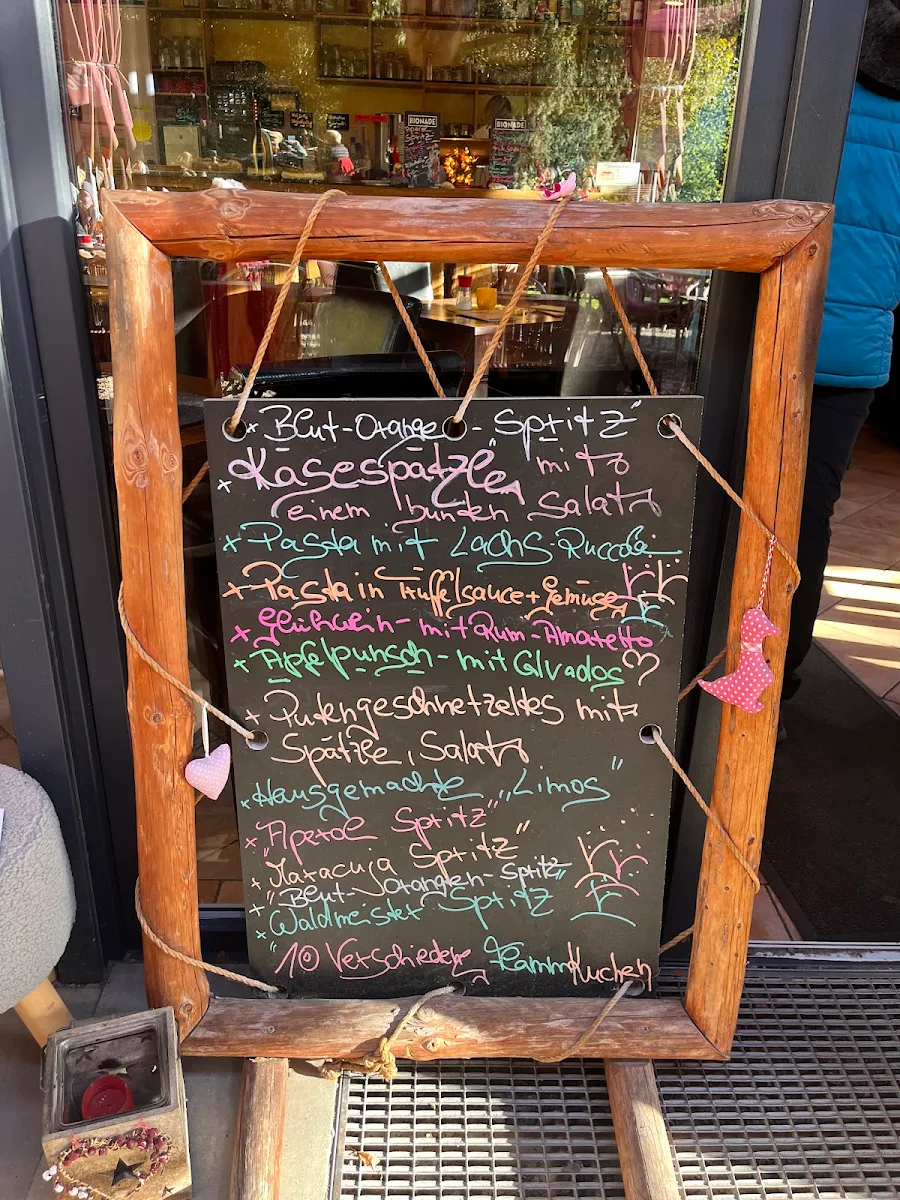 BIONADE
BIONADE
Spritz
x Blut-Orange - Spritz"
x Käsespätzle mit
einem bunten Salat
x Pasta mit Lachs-Ruccola
x Pasta in Trüffelsauce + Gemüse
x Glühwein - mit Rum - Amaretto
x Apfelpunsch - mit Calvados ♡
x Putengeschnetzeltes mit
Spätzle, Salat
x Hausgemachte „Limos"
x Aperol Spritz"
x Maracuja Spritz"
"Blut-Orangen-Spritz"
x Waldmeister Spritz
"10 Verschiedene Flammkuchen